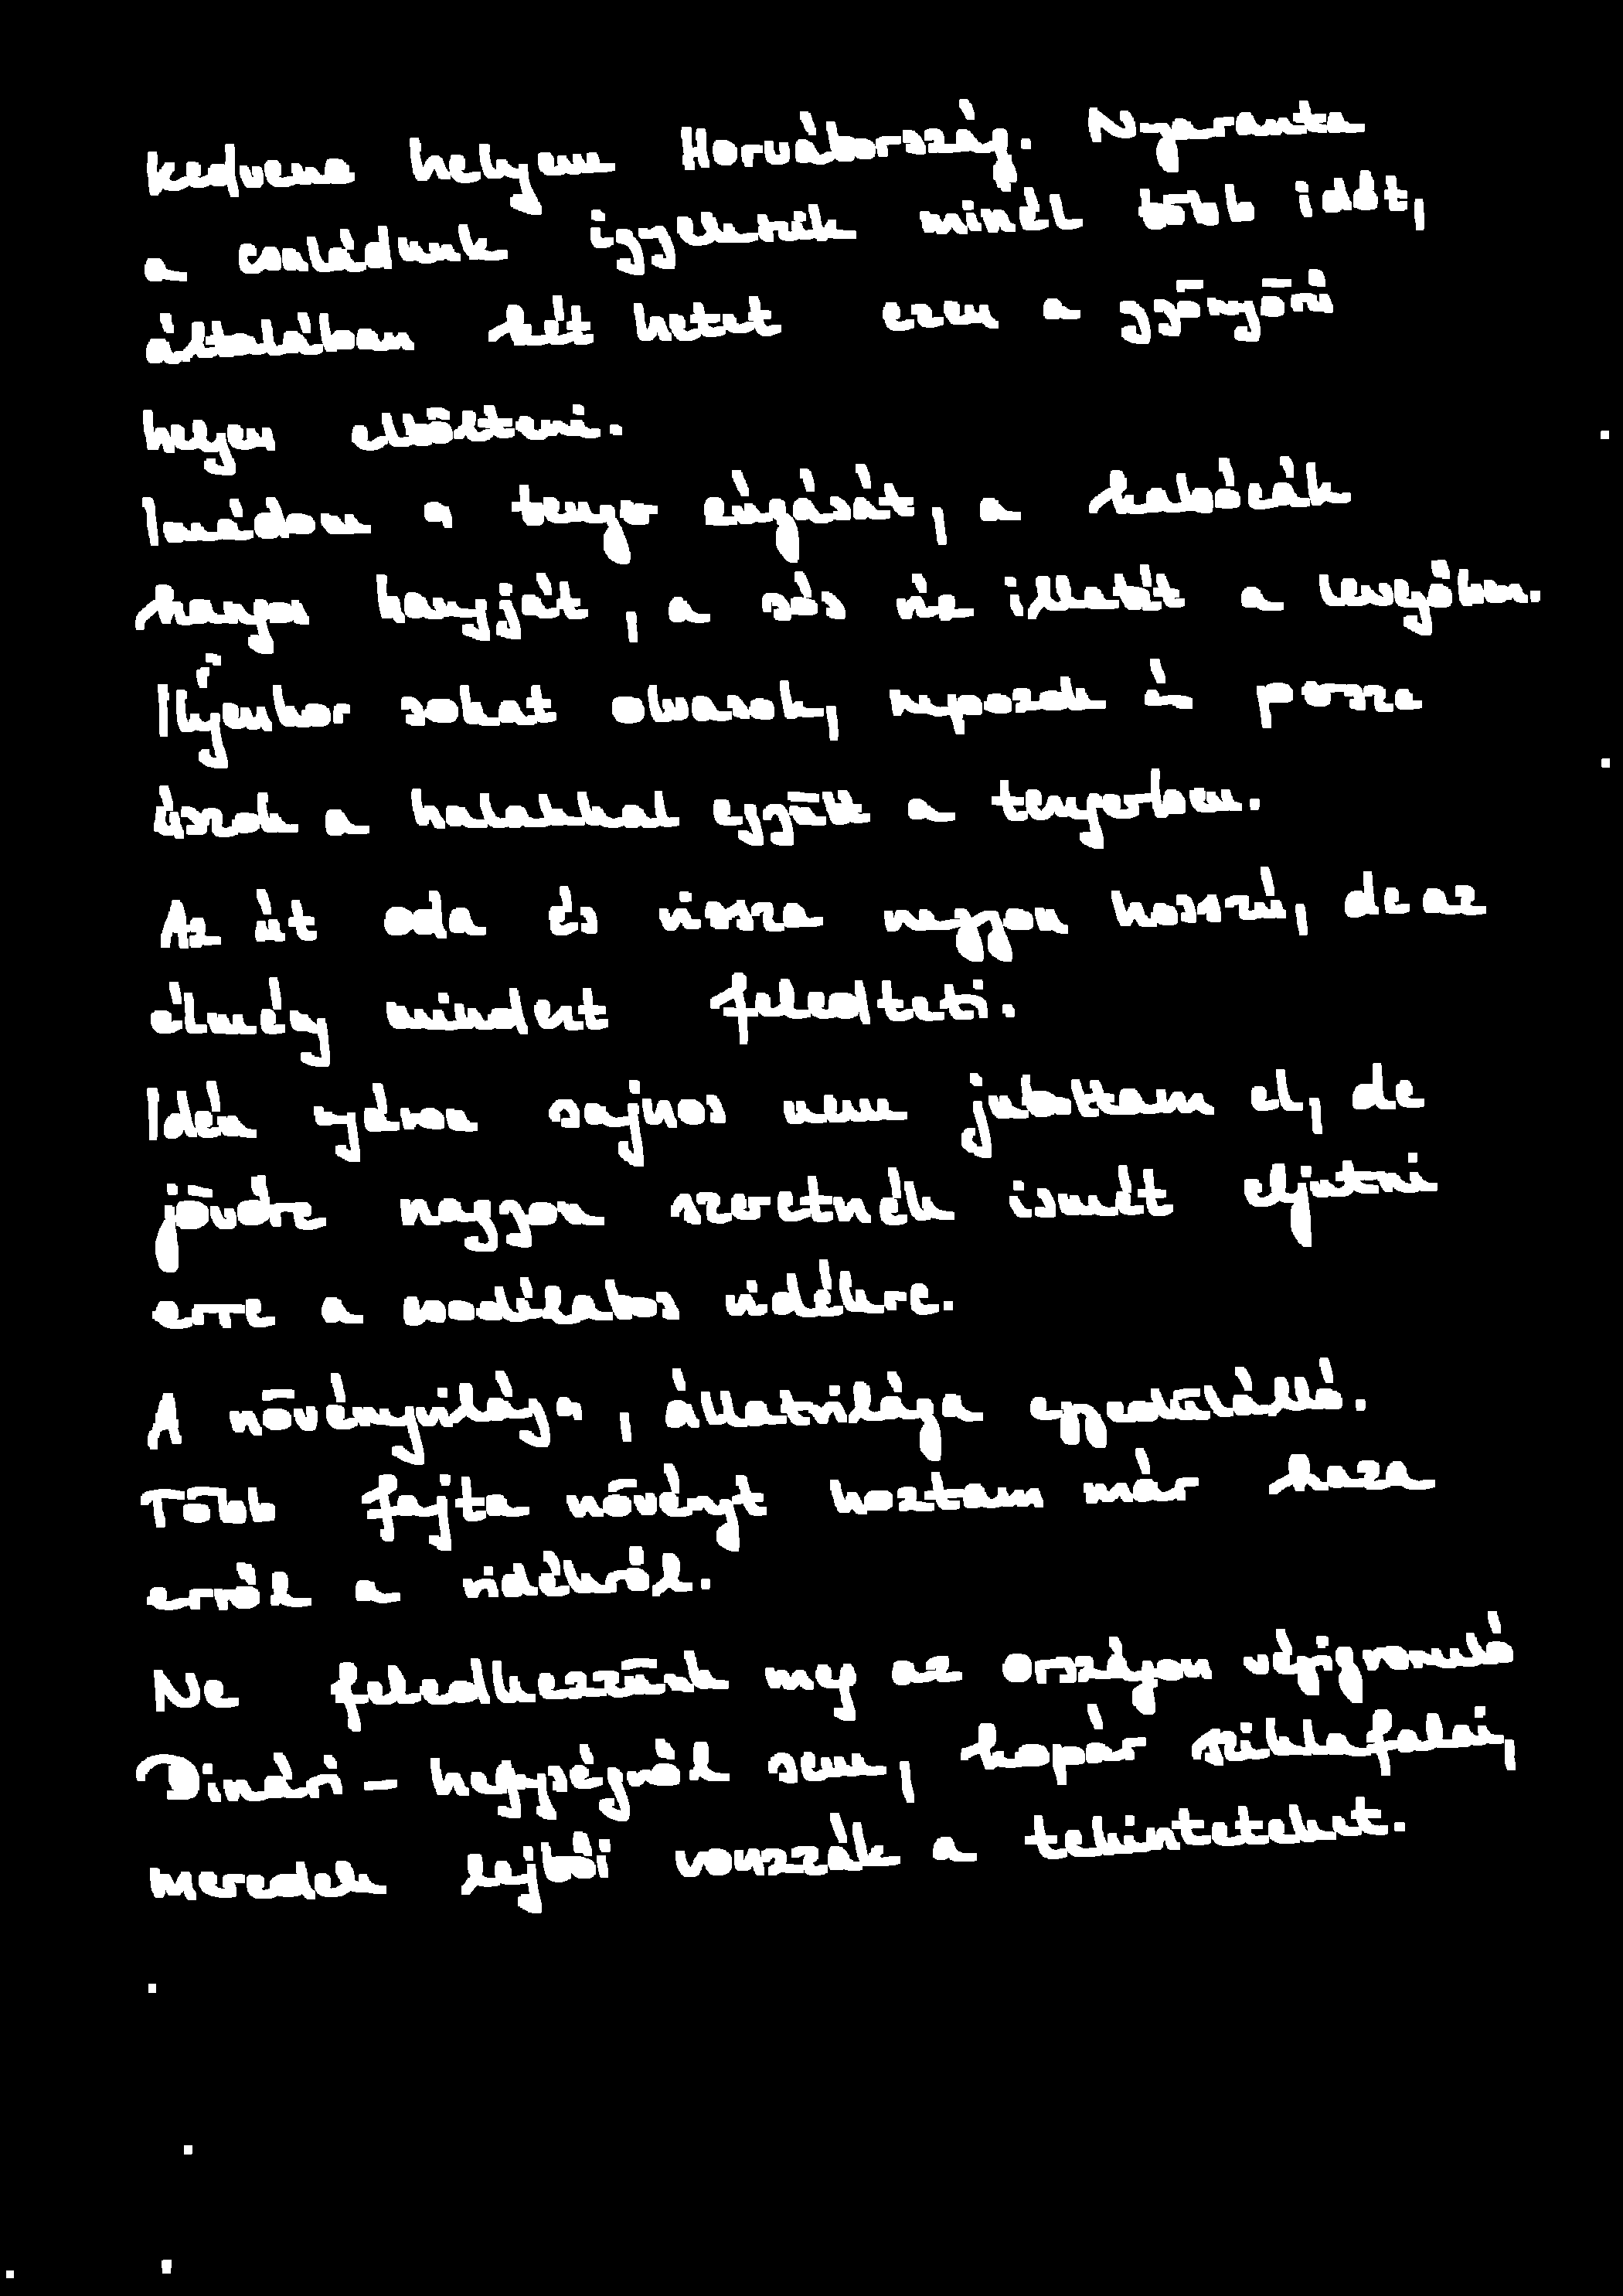 Kedvenc helyem Horvátország. Nyaranta
a családunk igyekszik minél több időt,
általában két hetet ezen a gyönyörű
helyen eltölteni.
Imádom a tenger zúgását, a kabócák
hangos hangját, a sós víz illatát a levegőben.
Ilyenkor sokat olvasok, naposok és persze
úszok a halakkal együtt a tengerben.
Az út oda és vissza nagyon hosszú, de az
élmény mindezt feledteti.
Idén nyáron sajnos nem jutottam el, de
jövőre nagyon szeretnék ismét eljutni
erre a csodálatos vidékre.
A növényvilága, állatvilága egyedülálló.
Több fajta növényt hoztam már haza
erről a vidékről.
Ne feledkezzünk meg az országon végigvonuló
Dinári-hegységről sem, kopár sziklafalai,
meredek lejtői vonzzák a tekinteteket.